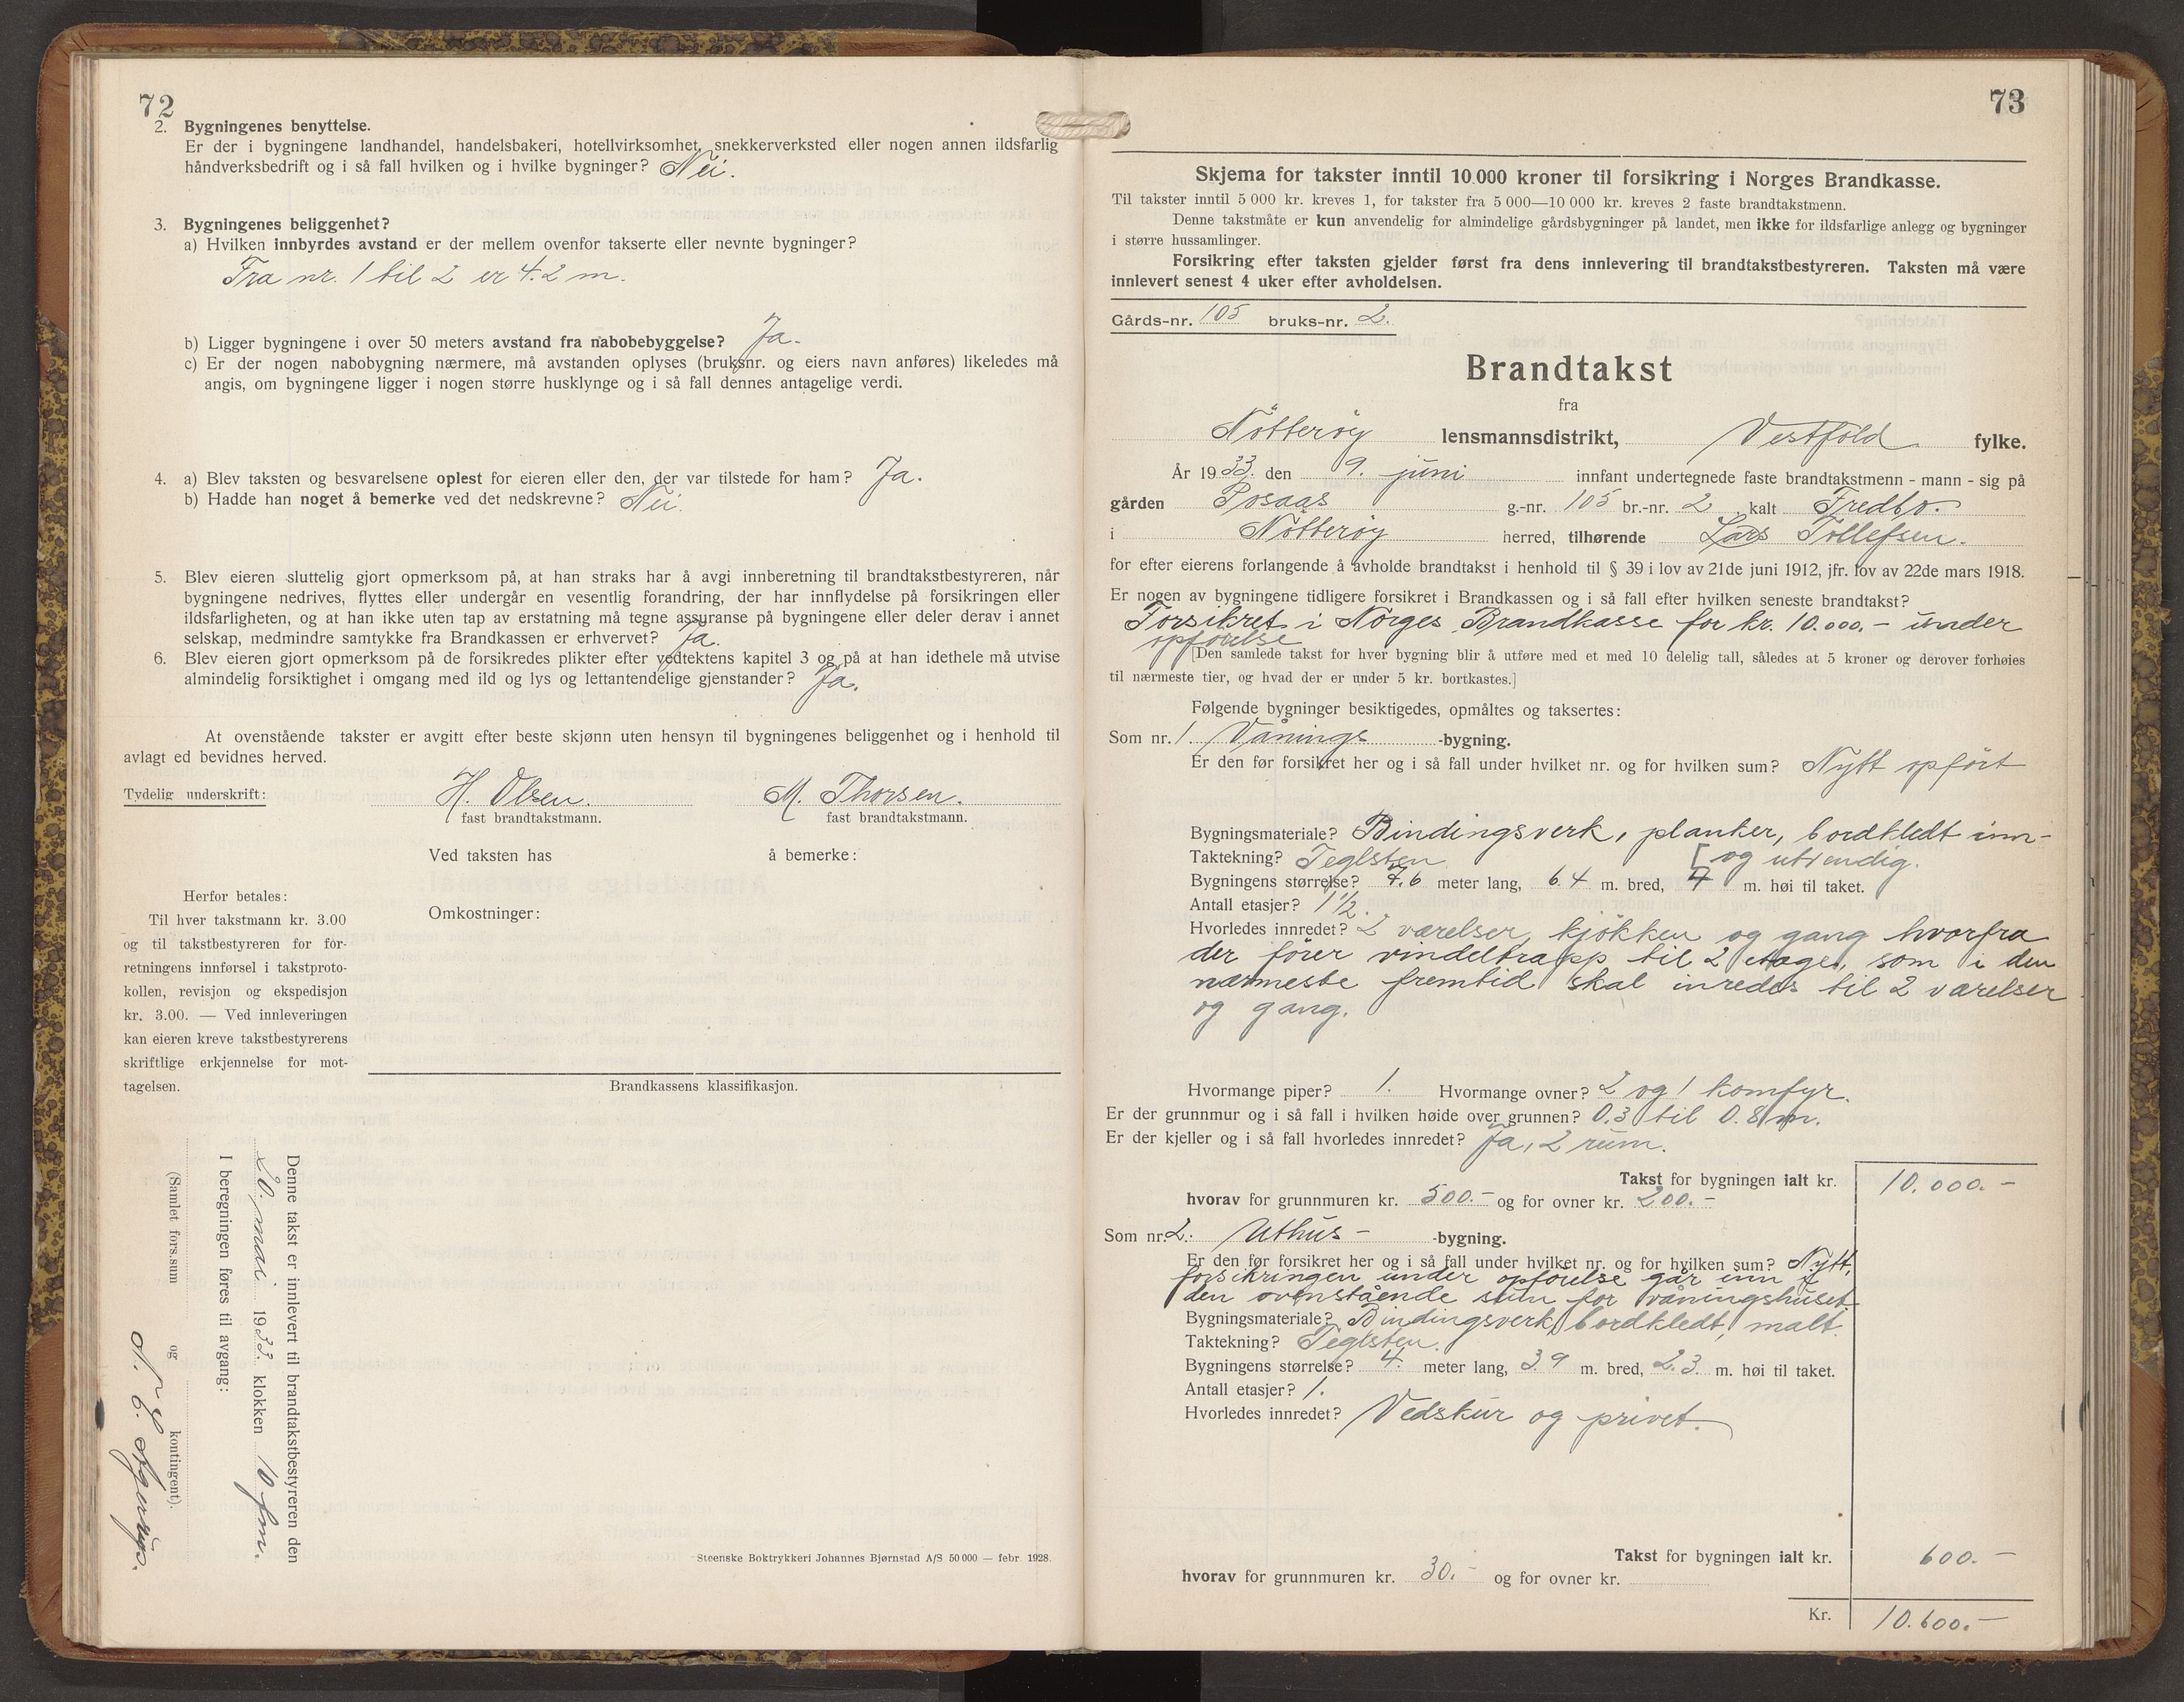 72
2. Bygningenes benyttelse.
Er der i bygningene landhandel, handelsbakeri, hotellvirksomhet, snekkerverksted eller nogen annen ildsfarlig
håndverksbedrift og i så fall hvilken og i hvilke bygninger? Nei.
3. Bygningenes beliggenhet?
a) Hvilken innbyrdes avstand er der mellem ovenfor takserte eller nevnte bygninger?
Fra nr. 1 til 2 er 4.2 m.
b) Ligger bygningene i over 50 meters avstand fra nabobebyggelse? Ja.
c) Er der nogen nabobygning nærmere, må avstanden oplyses (bruksnr. og eiers navn anføres) likeledes må
angis, om bygningene ligger i nogen større husklynge og i så fall dennes antagelige verdi.
4. a) Blev taksten og besvarelsene oplest for eieren eller den, der var tilstede for ham? Ja.
b) Hadde han noget å bemerke ved det nedskrevne? Nei.
5. Blev eieren sluttelig gjort opmerksom på, at han straks har å avgi innberetning til brandtakstbestyreren, når
bygningene nedrives, flyttes eller undergår en vesentlig forandring, der har innflydelse på forsikringen eller
ildsfarligheten, og at han ikke uten tap av erstatning må tegne assuranse på bygningene eller deler derav i annet
selskap, medmindre samtykke fra Brandkassen er erhvervet? Ja.
6. Blev eieren gjort opmerksom på de forsikredes plikter efter vedtektens kapitel 3 og på at han idethele må utvise
almindelig forsiktighet i omgang med ild og lys og lettantendelige gjenstander? Ja.
At ovenstående takster er avgitt efter beste skjønn uten hensyn til bygningenes beliggenhet og i henhold til
avlagt ed bevidnes herved.
Tydelig underskrift: H. Olsen. M. Thorsen.
fast brandtakstmann. fast brandtakstmann.
Ved taksten has å bemerke:
Herfor betales:
Til hver takstmann kr. 3.00
og til takstbestyreren for for-
retningens innførsel i takstproto-
kollen, revisjon og ekspedisjon
kr. 3.00. — Ved innleveringen
kan eieren kreve takstbestyrerens
skriftlige erkjennelse for mot-
tagelsen.
Omkostninger:
Brandkassens klassifikasjon.
Denne takst er innlevert til brandtakstbestyreren den
20. mai 1933. klokken 10 fm.
I beregningen føres til avgang:
(Samlet fors.sum og kontingent).
Steenske Boktrykkeri Johannes Bjørnstad A/S 50 000 — febr. 1928.
73
Skjema for takster inntil 10 000 kroner til forsikring i Norges Brandkasse.
Til takster inntil 5 000 kr. kreves 1, for takster fra 5 000—10 000 kr. kreves 2 faste brandtakstmenn.
Denne takstmåte er kun anvendelig for almindelige gårdsbygninger på landet, men ikke for ildsfarlige anlegg og bygninger
i større hussamlinger.
Forsikring efter taksten gjelder først fra dens innlevering til brandtakstbestyreren. Taksten må være
innlevert senest 4 uker efter avholdelsen.
Gårds-nr. 105 bruks-nr. 2.
Brandtakst
fra
Nötteröy lensmannsdistrikt, Vestfold fylke.
År 1933. den 9. juni innfant undertegnede faste brandtakstmenn - mann - sig på
gården Rosaas g.-nr. 105 br.-nr. 2 kalt Fredbo.
i Nötteröy herred, tilhørende Lars Tollefsen.
for efter eierens forlangende å avholde brandtakst i henhold til § 39 i lov av 21de juni 1912, jfr. lov av 22de mars 1918.
Er nogen av bygningene tidligere forsikret i Brandkassen og i så fall efter hvilken seneste brandtakst?
Forsikret i Norges Brandkasse for kr. 10.000.- under
opförelse
[Den samlede takst for hver bygning blir å utføre med et med 10 delelig tall, således at 5 kroner og derover forhøies
til nærmeste tier, og hvad der er under 5 kr. bortkastes.]
Følgende bygninger besiktigedes, opmåltes og taksertes:
Som nr. 1. Vånings -bygning.
Er den før forsikret her og i så fall under hvilket nr. og for hvilken sum? Nytt opfört
Bygningsmateriale? Bindingsverk, planker, bordkledt inn-
Taktekning? Teglsten [og utvendig.
Bygningens størrelse? 7.6 meter lang, 6.4 m. bred, 4 m. høi til taket.
Antall etasjer? 1 1/2.
Hvorledes innredet? 2 værelser, kjökken og gang hvorfra
der förer vindeltrapp til 2 etage, som i den
nærmeste fremtid skal inredes til 2 værelser
og gang.
Hvormange piper? 1. Hvormange ovner? 2 og 1 komfyr.
Er der grunnmur og i så fall i hvilken høide over grunnen? 0.3 til 0.8 m.
Er der kjeller og i så fall hvorledes innredet? Ja, 2 rum.
Takst for bygningen ialt kr. 10.000.-
hvorav for grunnmuren kr. 500.- og for ovner kr. 200.-
Som nr. 2. Uthus - -bygning.
Er den før forsikret her og i så fall under hvilket nr. og for hvilken sum? Nytt,
forsikringen under opförelse går inn i
den ovenstående sum for våningshuset.
Bygningsmateriale? Bindingsverk, bordkledt, malt.
Taktekning? Teglsten.
Bygningens størrelse? 4. meter lang, 3.9 m. bred, 2.3. m. høi til taket.
Antall etasjer? 1.
Hvorledes innredet? Vedskur og privet.
Takst for bygningen ialt kr. 600.-
hvorav for grunnmuren kr. 30.- og for ovner kr.
Kr. 10.600.-